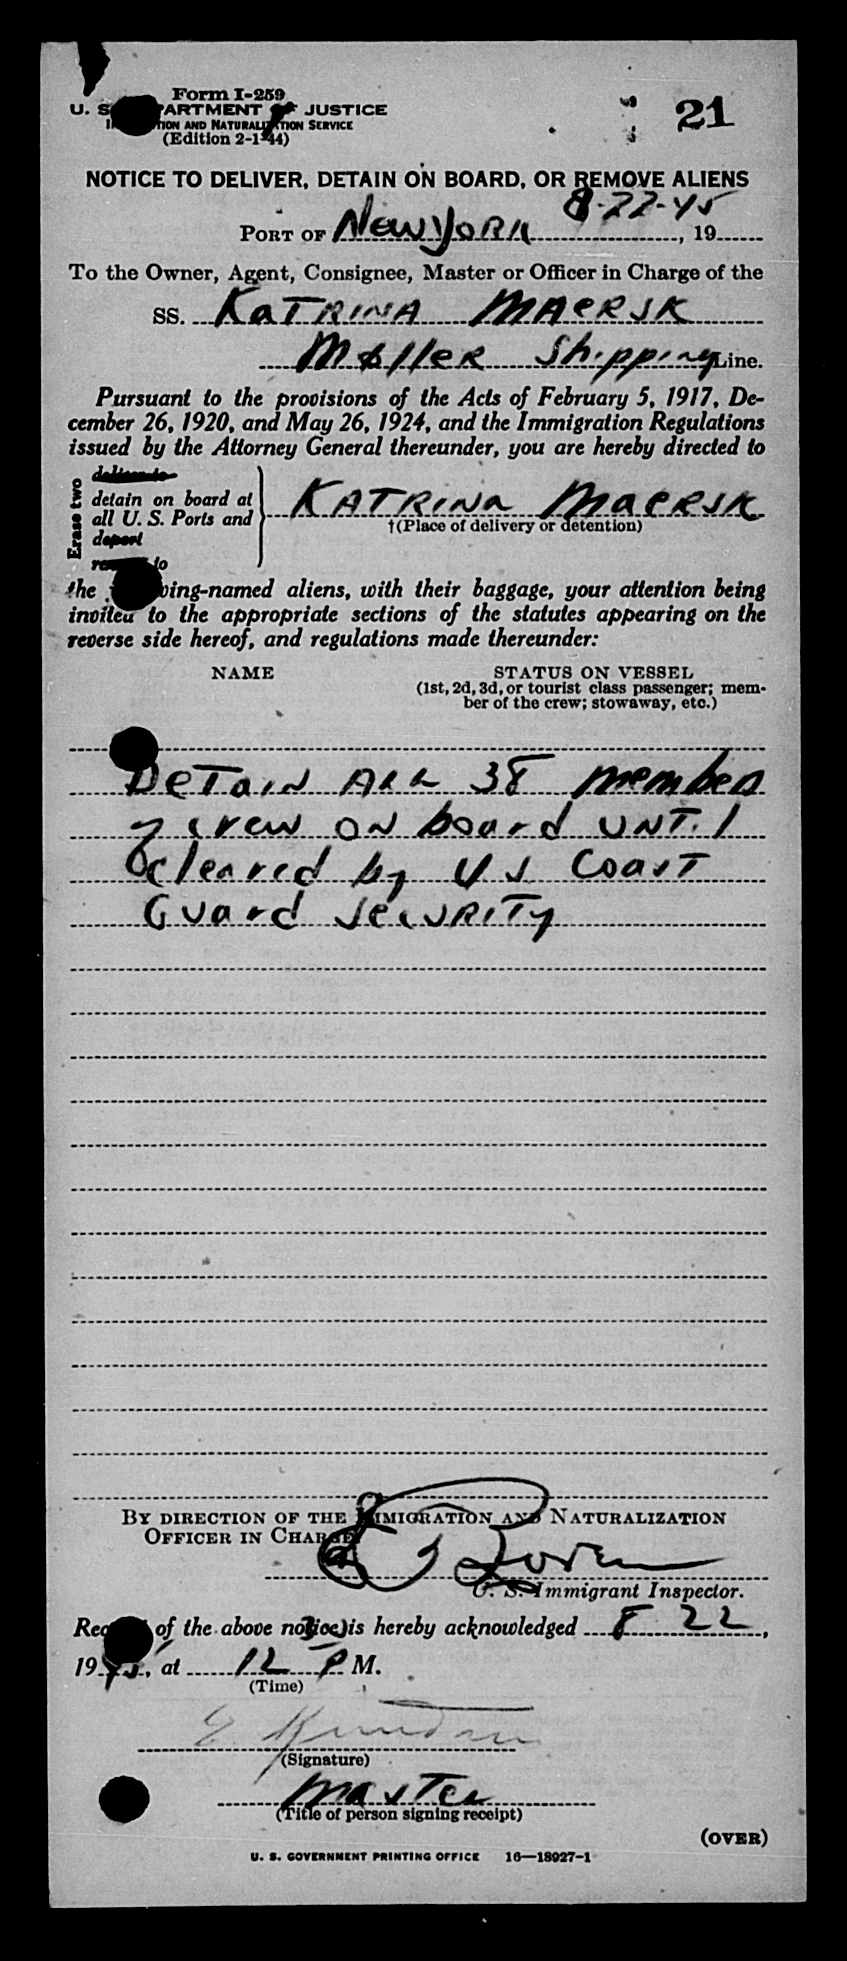 Form I-259
21
U. S. DEPARTMENT OF JUSTICE
IMMIGRATION AND NATURALIZATION SERVICE
(Edition 2-1-44)
NOTICE TO DELIVER, DETAIN ON BOARD, OR REMOVE ALIENS
8-22-45
PORT OF New York, 19
To the Owner, Agent, Consignee, Master or Officer in Charge of the
SS. KATRINA MAERSK
Møller Shipping Line.
Pursuant to the provisions of the Acts of February 5, 1917, De-
cember 26, 1920, and May 26, 1924, and the Immigration Regulations
issued by the Attorney General thereunder, you are hereby directed to
Erase two
deliver to
detain on board at
all U. S. Ports and
deport
remove to
KATRINA MAERSK
†(Place of delivery or detention)
the following-named aliens, with their baggage, your attention being
invited to the appropriate sections of the statutes appearing on the
reverse side hereof, and regulations made thereunder:
NAME STATUS ON VESSEL
(1st, 2d, 3d, or tourist class passenger; mem-
ber of the crew; stowaway, etc.)
DETAIN ALL 38 members
of crew ON board UNTIL
cleared by US COAST
Guard SECURITY
BY DIRECTION OF THE IMMIGRATION AND NATURALIZATION
OFFICER IN CHARGE
U. S. Immigrant Inspector.
Receipt of the above notice is hereby acknowledged 8 22,
1945, at 12 P M.
(Time)
(Signature)
master
(Title of person signing receipt)
(OVER)
U. S. GOVERNMENT PRINTING OFFICE 16—18927-1